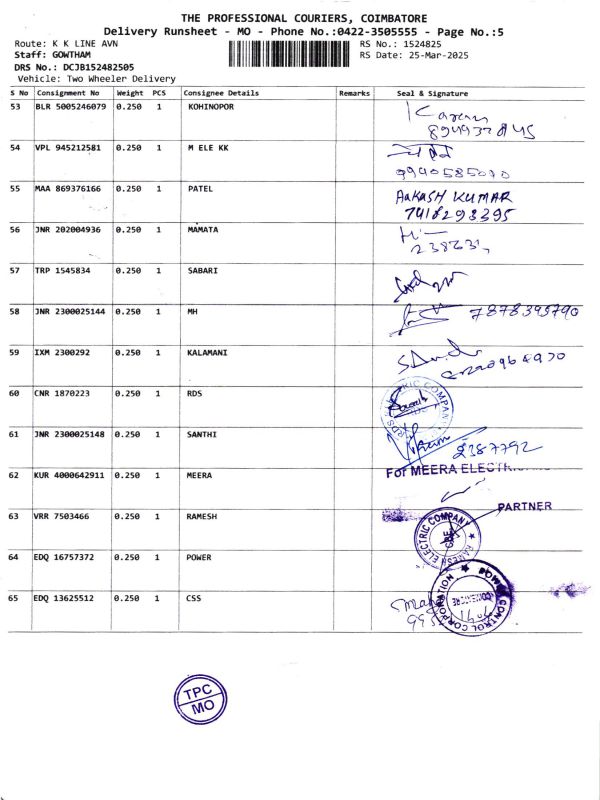 THE PROFESSIONAL COURIERS, COIMBATORE
Delivery Runsheet - MO - Phone No.:0422-3505555 - Page No.:5
Route: K K LINE AVN
RS No.: 1524825
Staff: GOWTHAM
RS Date: 25-Mar-2025
DRS No.: DCJB152482505
Vehicle: Two Wheeler Delivery
S No Consignment No Weight PCS Consignee Details Remarks Seal & Signature
53 BLR 5005246079 0.250 1 KOHINOPOR
54 VPL 945212581 0.250 1 M ELE KK
9940585070
55 MAA 869376166 0.250 1 PATEL AaKASH KUMAR
7418298395
56 JNR 202004936 0.250 1 MAMATA
57 TRP 1545834 0.250 1 SABARI
58 JNR 2300025144 0.250 1 MH 7878395790
59 IXM 2300292 0.250 1 KALAMANI
60 CNR 1870223 0.250 1 RDS
61 JNR 2300025148 0.250 1 SANTHI
For MEERA ELECTRI
62 KUR 4000642911 0.250 1 MEERA
PARTNER
63 VRR 7503466 0.250 1 RAMESH
RAMESH ELECTRIC COMPANY
CBE
64 EDQ 16757372 0.250 1 POWER
POWER CONTROL CORPORATION
COIMBATORE
65 EDQ 13625512 0.250 1 CSS
TPC
MO